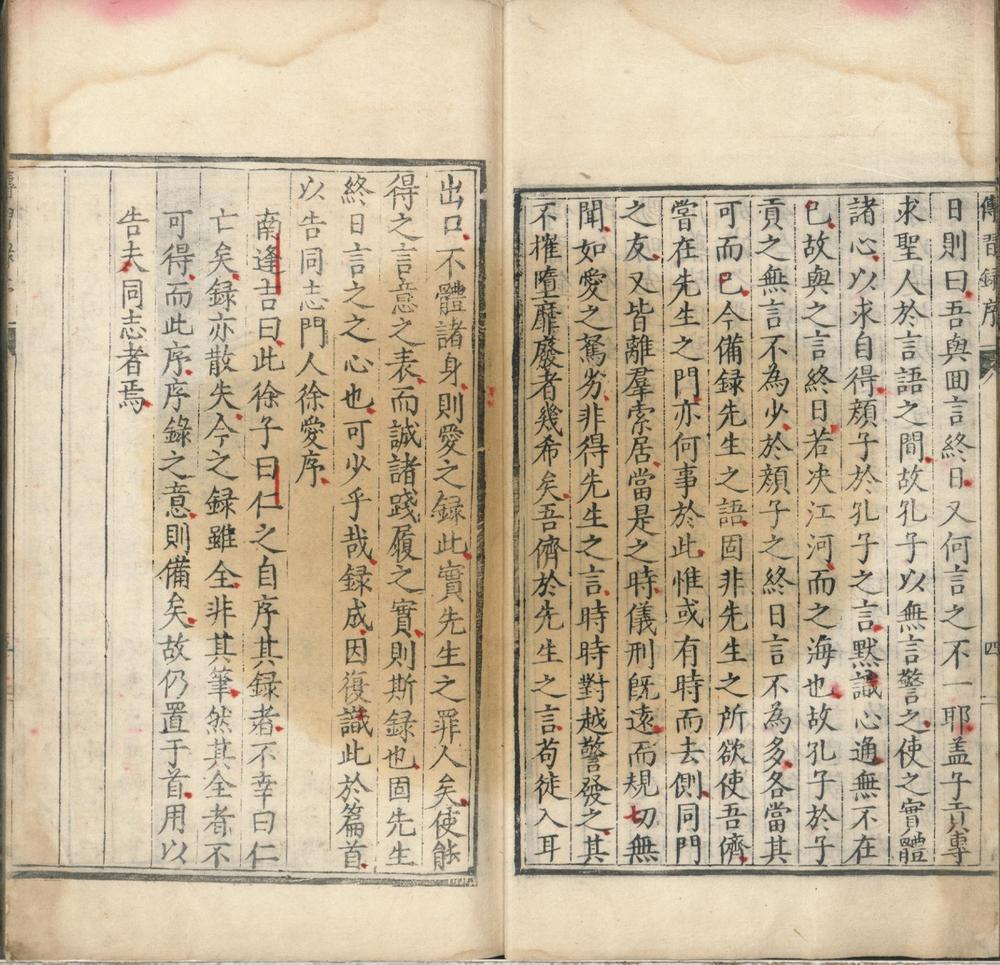 傳習録序
四
日則曰吾與囬言終日又何言之不一耶盖子貢專
求聖人於言語之間故孔子以無言警之使之實體
諸心以求自得顔子於孔子之言默識心通無不在
已故與之言終日若决江河而之海也故孔子於子
貢之無言不為少於顔子之終日言不為多各當其
可而已今備録先生之語固非先生之所欲使吾儕
嘗在先生之門亦何事於此惟或有時而去側同門
之友又皆離羣索居當是之時儀刑旣遠而規切無
聞如愛之駑劣非得先生之言時時對越警發之其
不摧墮靡廢者幾希矣吾儕於先生之言苟徒入耳
出口不體諸身則愛之録此實先生之罪人矣使能
得之言意之表而誠諸踐履之實則斯録也固先生
終日言之之心也可少乎哉録成因復識此於篇首
以告同志門人徐愛序
南逢吉曰此徐子曰仁之自序其録者不幸曰仁
亡矣録亦散失今之録雖全非其筆然其全者不
可得而此序序錄之意則備矣故仍置于首用以
告夫同志者焉